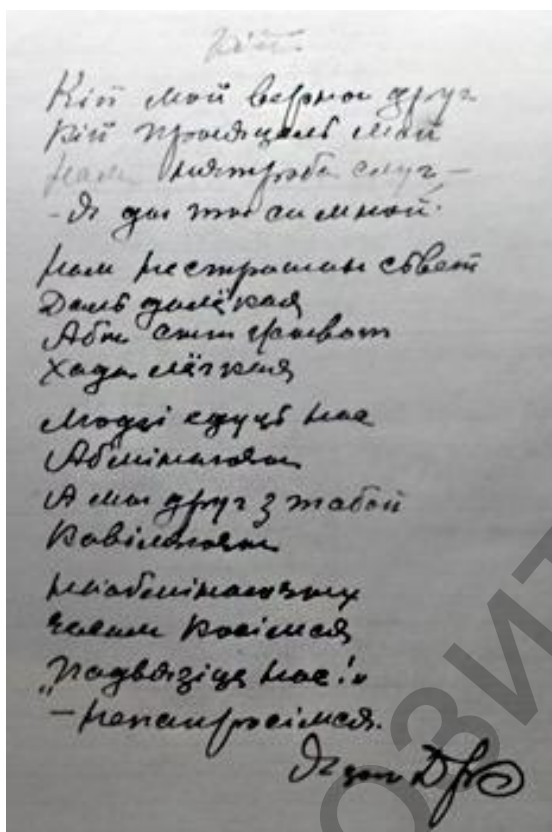 Кій
Кій мой верны друг
Кій прыяцель мой
Нам нятрэба слуг —
- Я ды ты са мной.
Нам нестрашны сьвет
Даль далёкая
Абы
Хада лёгкая
Людзі едуць нас
Абмінаюць
А мы друг з табой
Кавіляюць
Неабмінаючых
Косімся
„Падвязіце нас!“
— непапросімся.